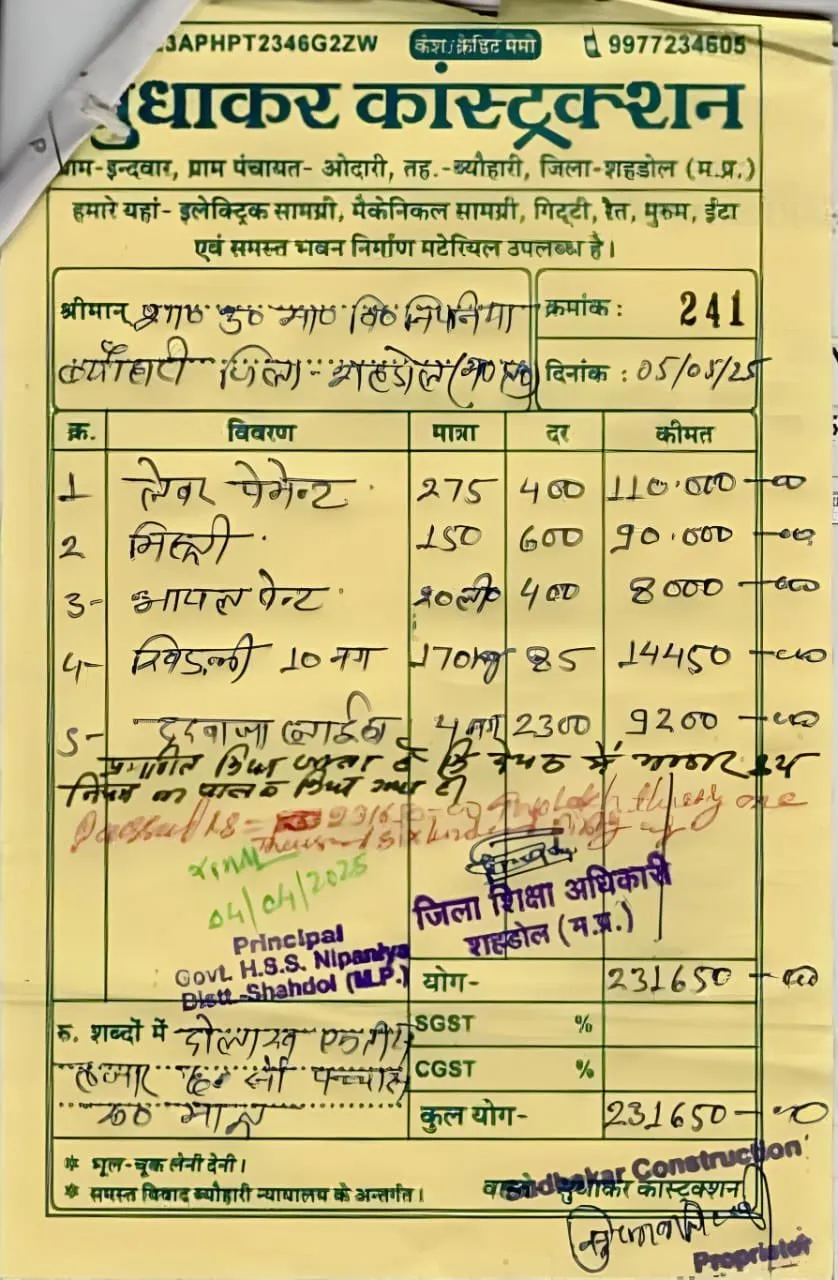 3APHPT2346G2ZW कैश/क्रेडिट मेमो 9977234605
सुधाकर कांस्ट्रक्शन
ग्राम-इन्दवार, ग्राम पंचायत- ओदारी, तह.-ब्यौहारी, जिला-शहडोल (म.प्र.)
हमारे यहां- इलेक्ट्रिक सामग्री, मैकेनिकल सामग्री, गिट्टी, रेत, मुरूम, ईटा
एवं समस्त भवन निर्माण मटेरियल उपलब्ध है।
श्रीमान् शा० उ० मा० वि० निपनिया
क्रमांक : 241
ब्यौहारी जिला - शहडोल (म०प्र०)
दिनांक : 05/05/25
क्र. विवरण मात्रा दर कीमत
1 लेबर पेमेन्ट 275 400 110.000-00
2 मिस्त्री 150 600 90.000-00
3- आयल पेन्ट 20 ली० 400 8000-00
4- खिड़की 10 नग 170kg 85 14450-00
5- दरवाजा 4 नग 2300 9200-00
प्रमाणित किया जाता है कि में भण्डार क्रय
नियम का पालन किया गया है।
Passed Rs = 231650 thirty one
Thousand six hundred fifty
04/04/2025
Principal
Govt. H.S.S. Nipaniya
Distt.-Shahdol (M.P.)
जिला शिक्षा अधिकारी
शहडोल (म.प्र.)
योग- 231650-00
रु. शब्दों में दो लाख एकतीस
हजार छः सौ पच्चास
रू० मात्र
SGST %
CGST %
कुल योग- 231650-00
* भूल-चूक लेनी देनी।
* समस्त विवाद ब्यौहारी न्यायालय के अन्तर्गत।
वास्ते सुधाकर कांस्ट्रक्शन
Sudhakar Construction
Proprietor